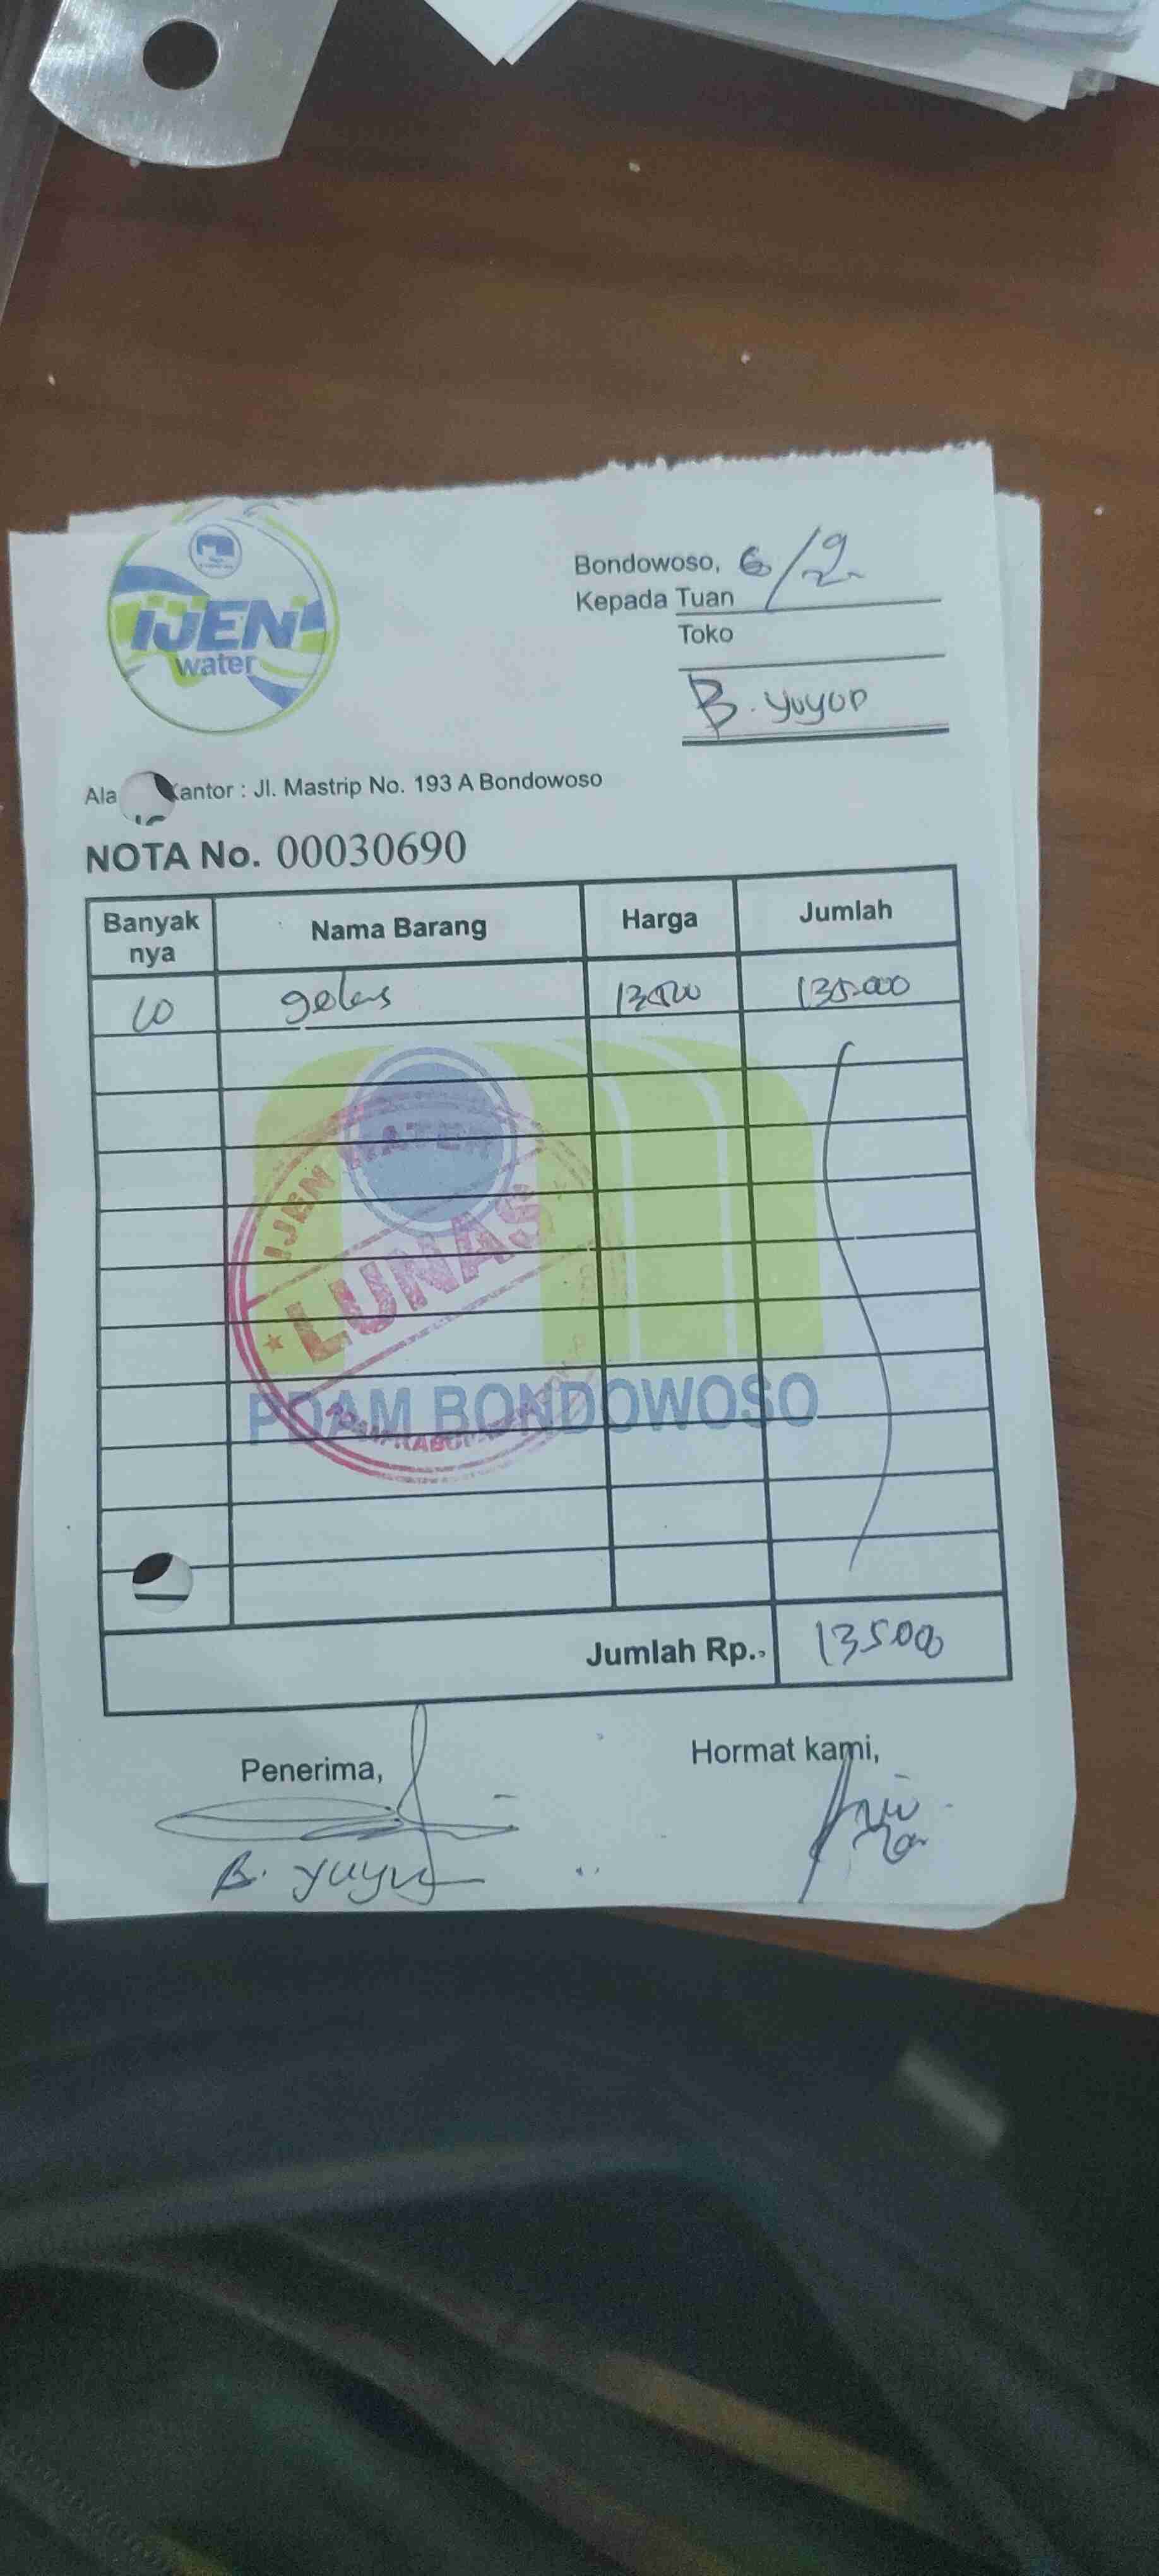 IJEN
water
Bondowoso, 6/2
Kepada Tuan
Toko
B. yuyup
Ala Kantor : Jl. Mastrip No. 193 A Bondowoso
NOTA No. 00030690
Banyak nya Nama Barang Harga Jumlah
10 gelas 13500 135.000
IJEN WATER
LUNAS
PDAM BONDOWOSO
Jumlah Rp.- 135000
Penerima, Hormat kami,
B. yuyup